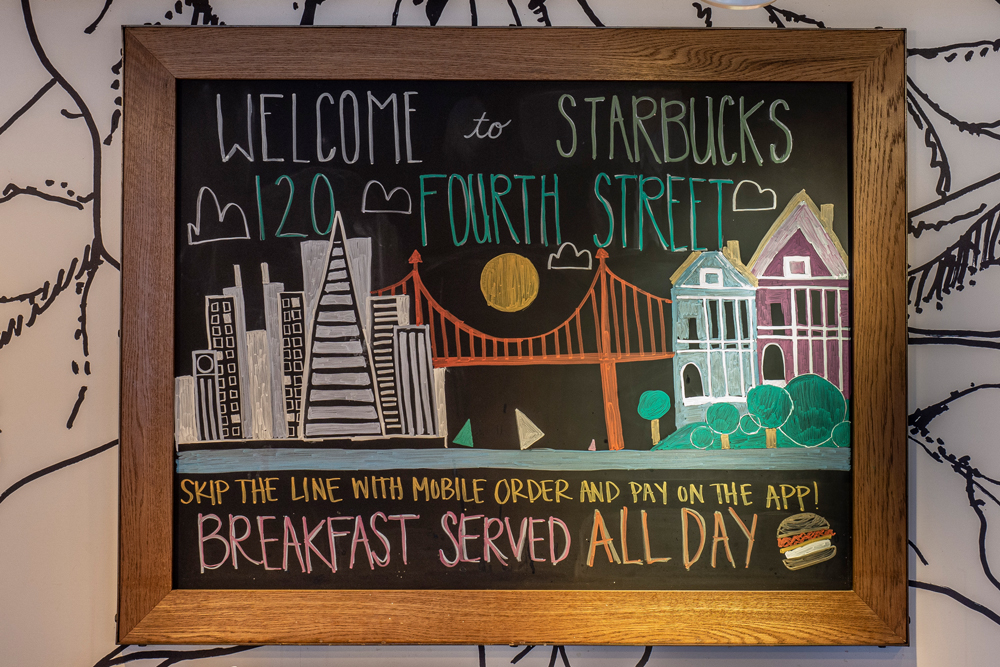 WELCOME to STARBUCKS
120 FOURTH STREET
SKIP THE LINE WITH MOBILE ORDER AND PAY ON THE APP!
BREAKFAST SERVED ALL DAY